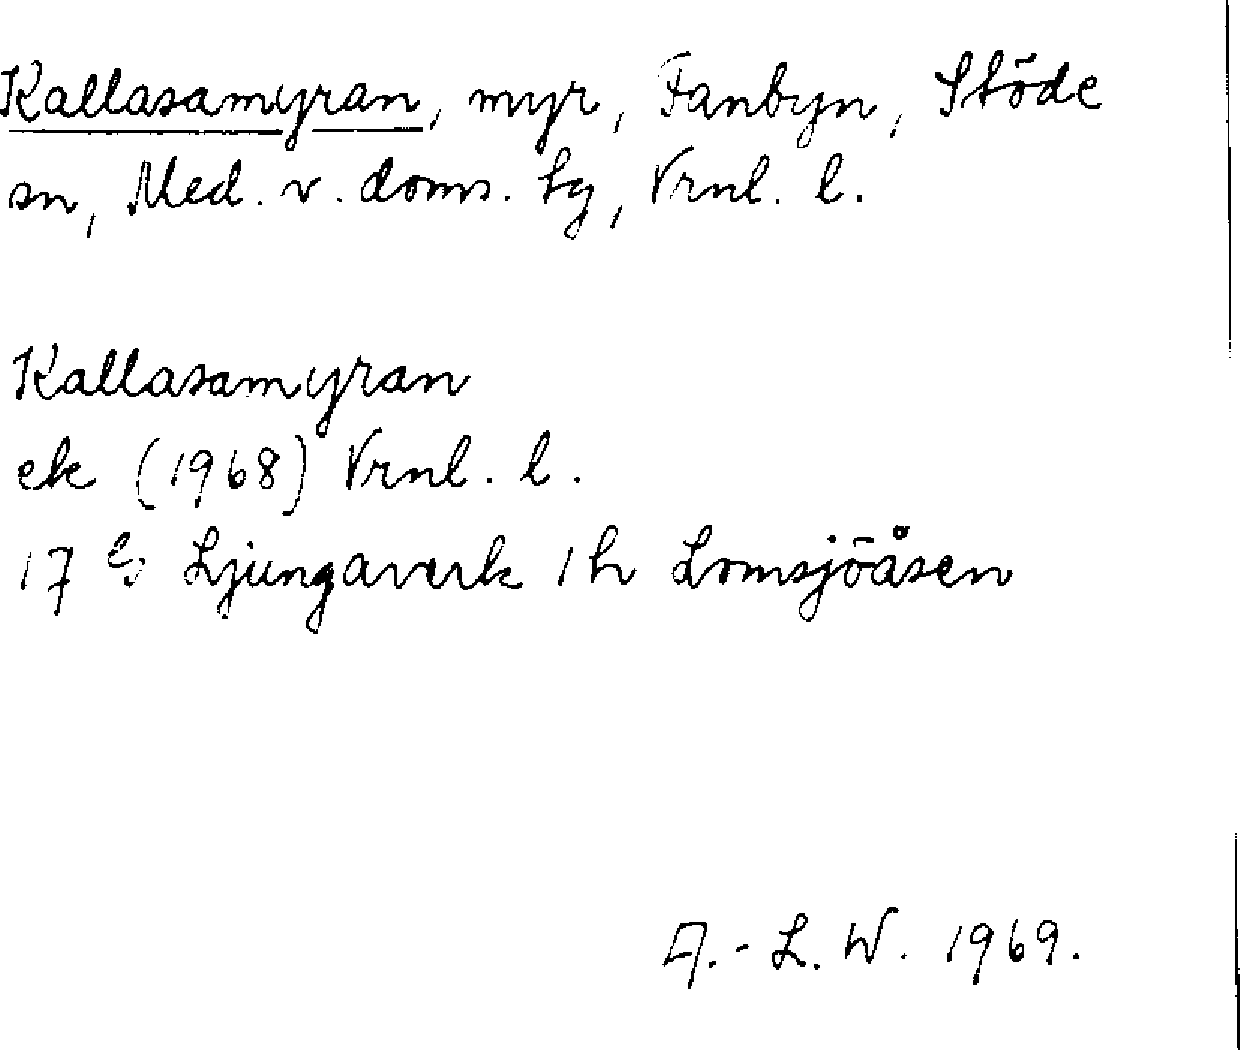 Kallasamyran, myr, Fanbyn, Stöde
sn, Med. v. doms. tg, Vrnl. l.
Kallasamyran
ek (1968) Vrnl. l.
17 G Ljungaverk 1 h Lomsjöåsen
A.-L. W. 1969.